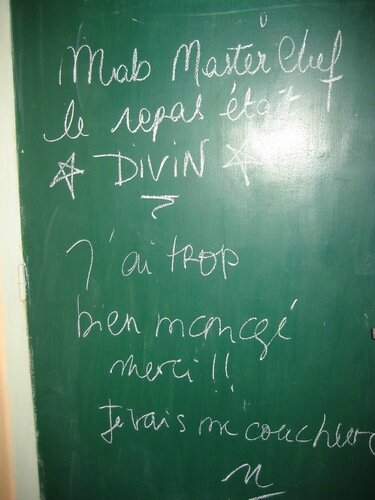 Mab Master Chef
le repas était
☆ DIVIN ☆
J'ai trop
bien mangé
merci !!
Je vais me coucher
n